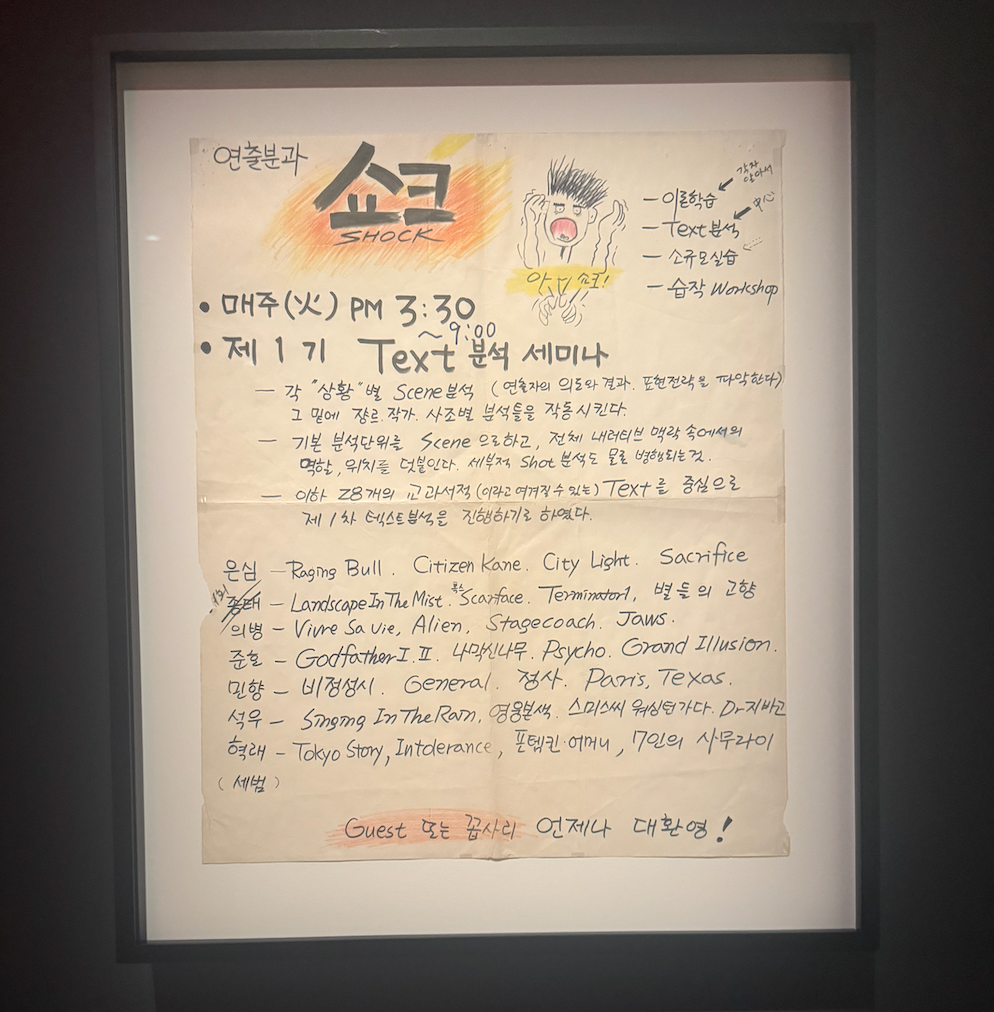 연출분과
쇼크
SHOCK
아, 쇼크!
각자
알아서
- 이론학습
中心
- Text 분석
- 소규모실습
- 습작 Workshop
• 매주(火) PM 3:30
~9:00
• 제 1 기 Text 분석 세미나
- 각 "상황"별 Scene 분석 (연출자의 의도와 결과. 표현전략을 파악한다)
그 밑에 쟝르.작가.사조별 분석틀을 작동시킨다.
- 기본 분석단위를 Scene으로하고, 전체 내러티브 맥락 속에서의
역할, 위치를 덧붙인다. 세부적 Shot 분석도 물론 병행되는것.
- 이하 28개의 교과서적 (이라고 여겨질 수 있는) Text를 중심으로
제 1차 텍스트분석을 진행하기로 하였다.
은심 - Raging Bull. Citizen Kane. City Light. Sacrifice
- Landscape In The Mist. Scarface. Terminator1, 별들의 고향
의병 - Vivre Sa Vie, Alien, Stagecoach. Jaws.
준호 - Godfather I. II. 나막신나무. Psycho. Grand Illusion.
민향 - 비정성시. General. 정사. Paris, Texas.
석우 - Singing In The Rain, 영웅본색. 스미스씨 워싱턴가다. Dr지바고
혁래 - Tokyo Story, Intolerance, 포템킨·어머니, 7인의 사무라이
(세범)
Guest 또는 꼽사리 언제나 대환영!